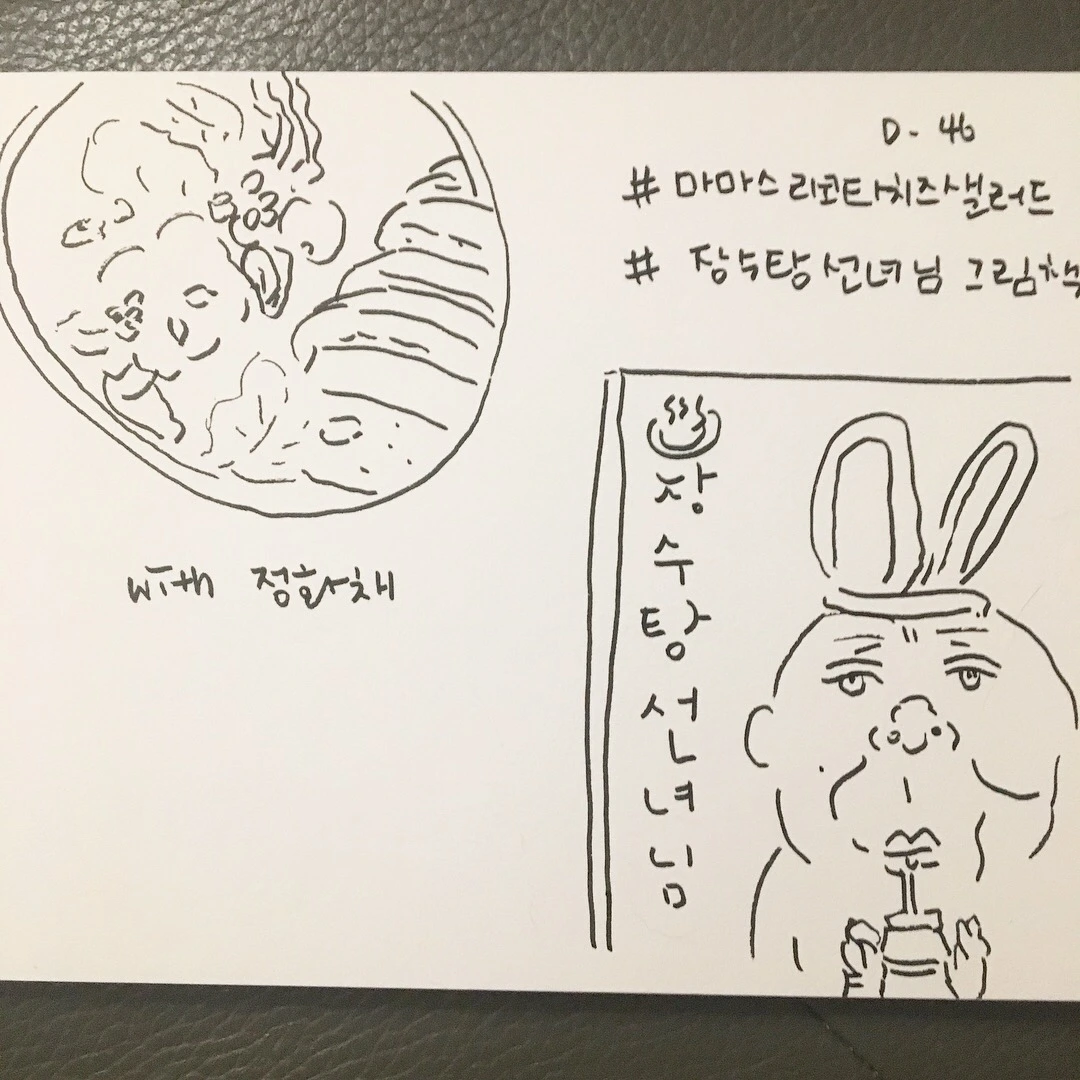 D-46
# 마마스 리코타치즈샐러드
# 장수탕 선녀님 그림책
with 정화서채
장수탕선녀님